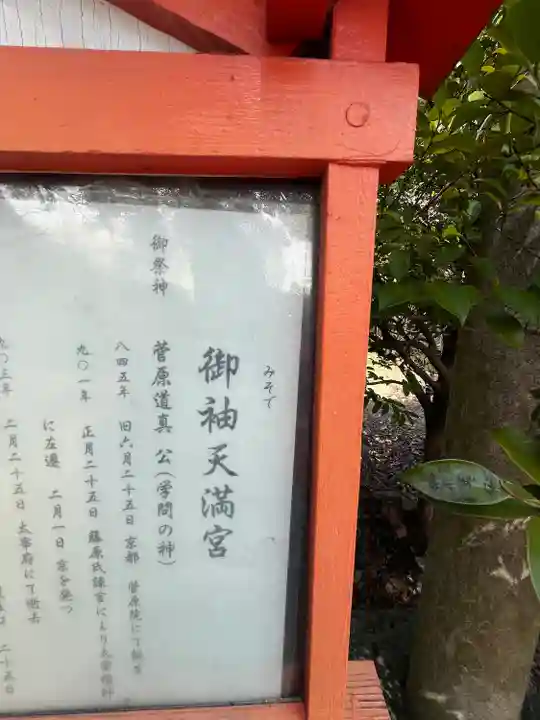 みそで
御袖天満宮
御祭神
菅原道真 公(学問の神)
八四五年 旧六月二十五日 京都 菅原院にて
九〇一年 正月二十五日 藤原氏讒言により太宰権帥
に左遷 二月一日 京を発つ
九〇三年 二月二十五日 太宰府にて徹去
二十五日